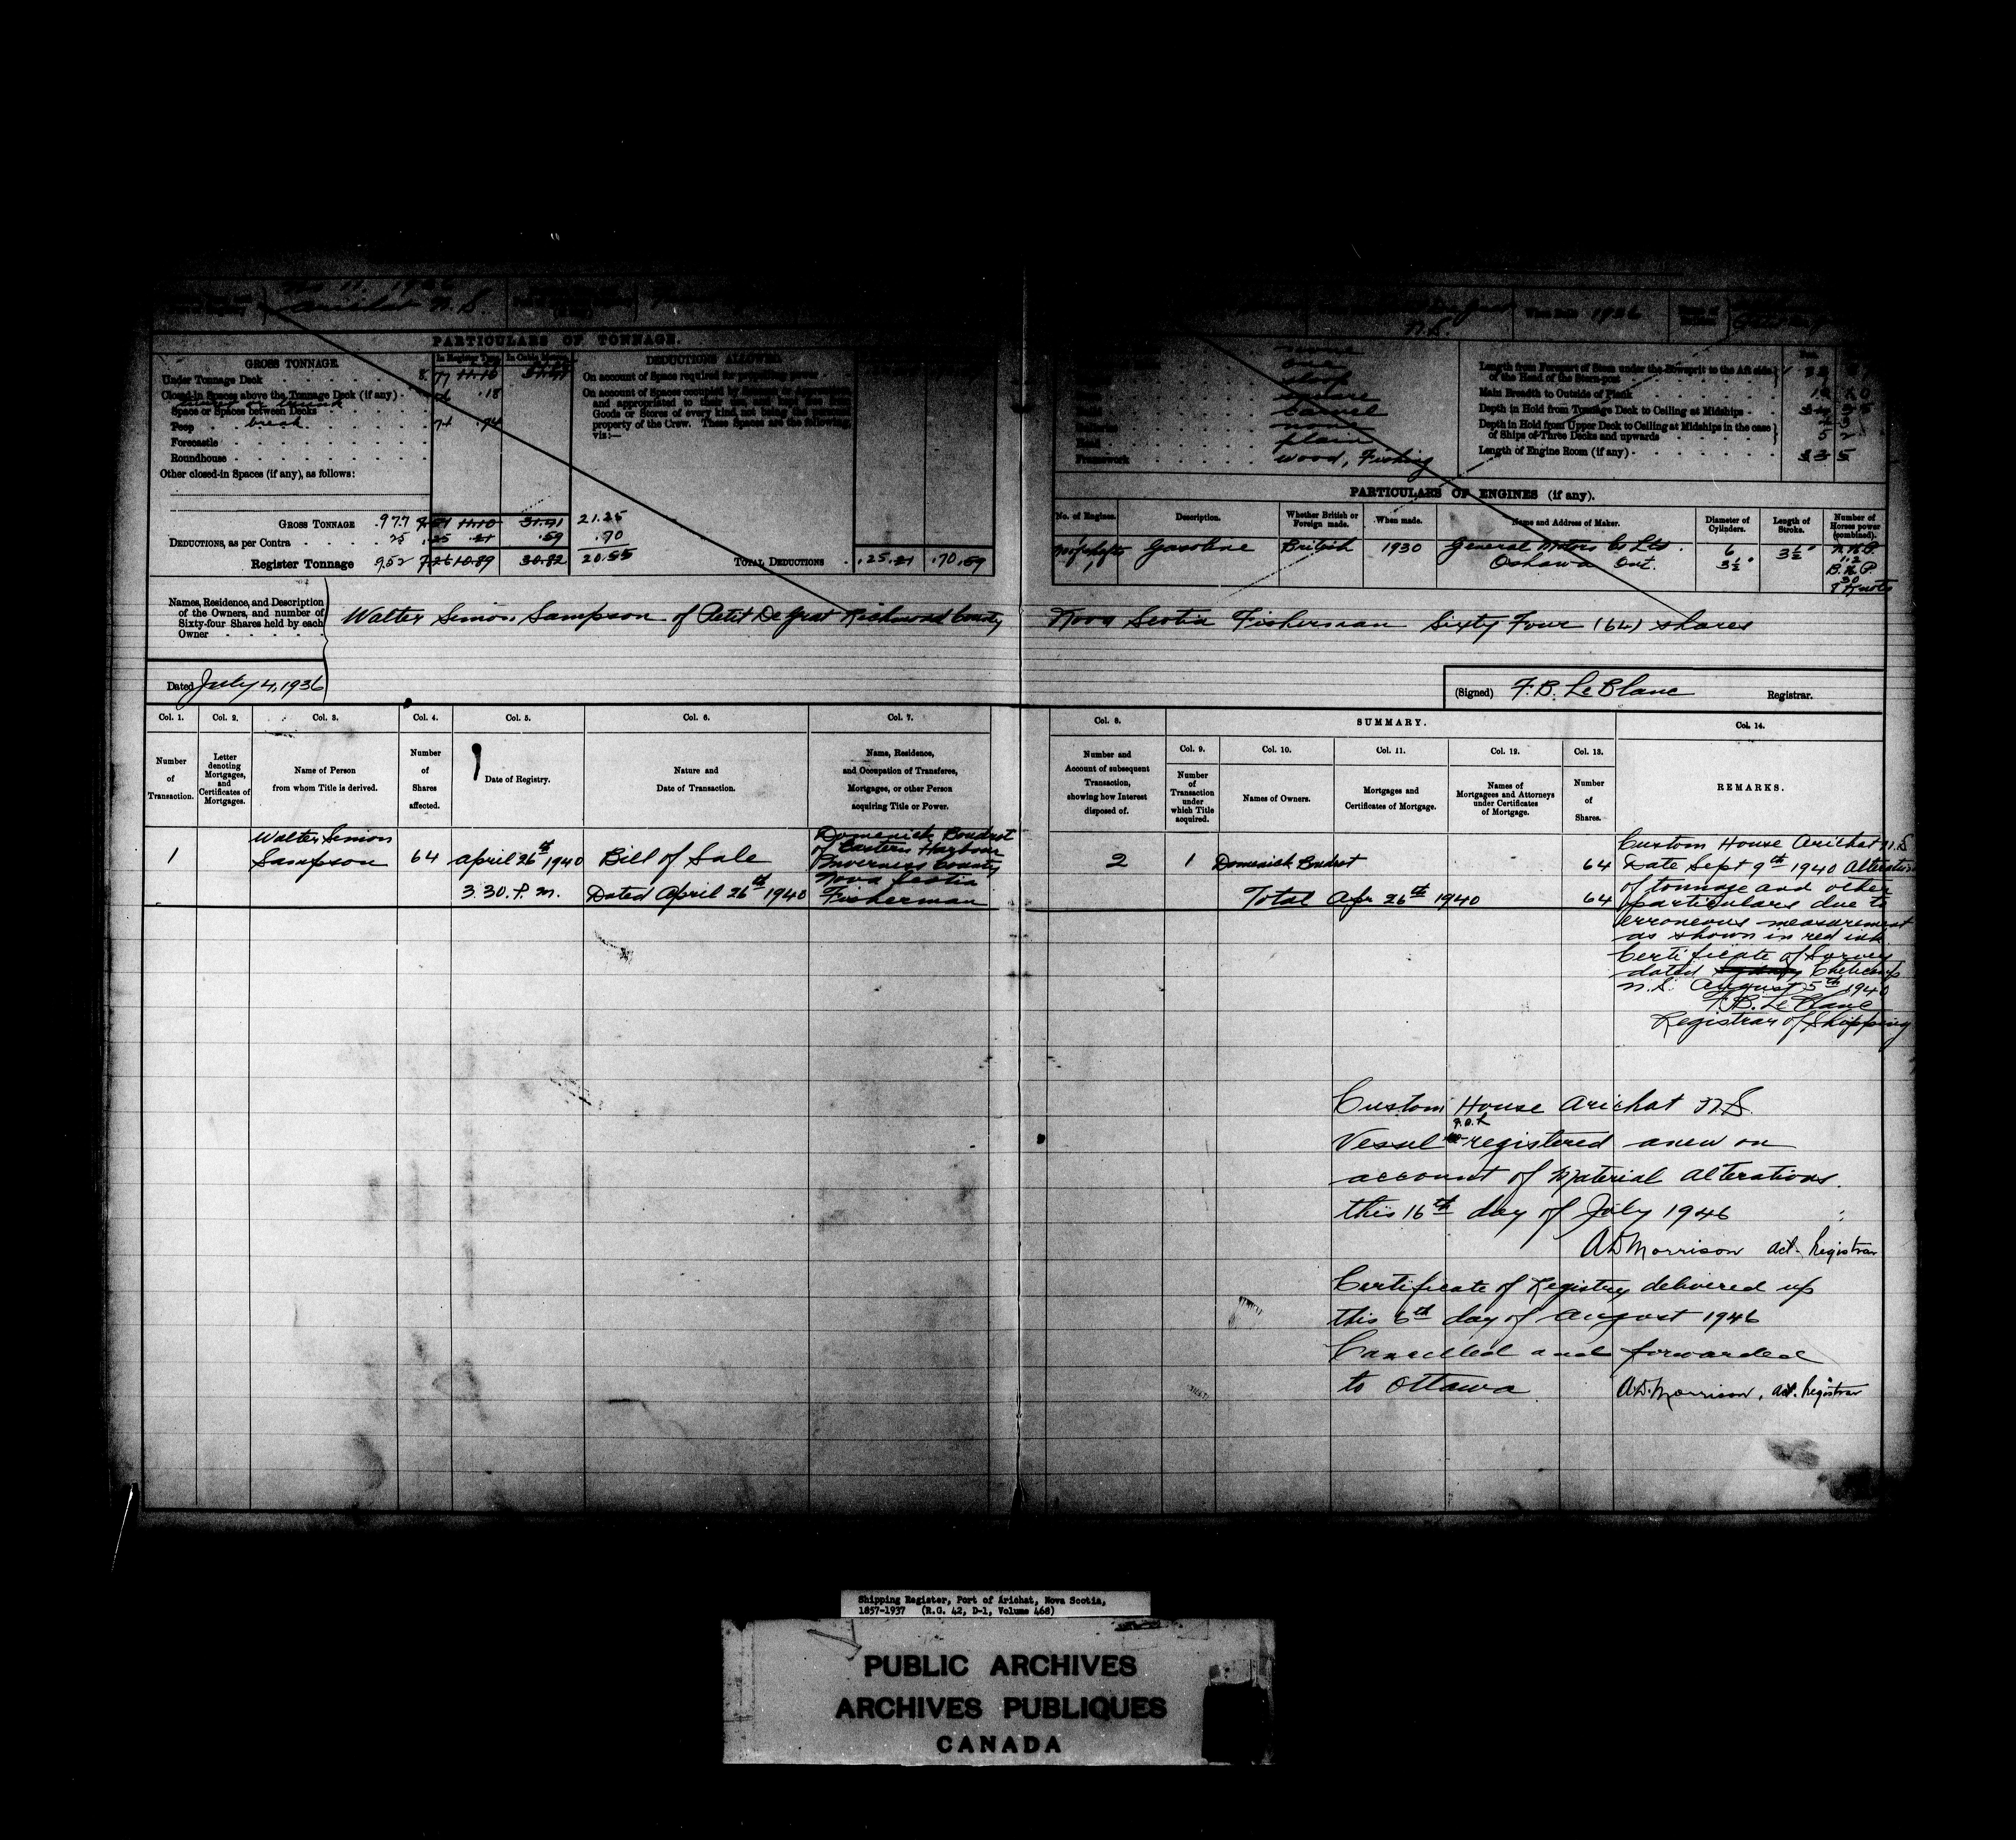 No 11. 1936
Arichat N.S.
N.S.
When Built 1936
PARTICULARS OF TONNAGE.
GROSS TONNAGE.
In Register Tons
Under Tonnage Deck 8. 77 11.10
Closed-in Spaces above the Tonnage Deck (if any) .18
Space or Spaces between Decks
Poop
break 74 .74
Forecastle
Roundhouse
Other closed-in Spaces (if any), as follows:
GROSS TONNAGE 9.77 31.41 21.25
DEDUCTIONS, as per Contra .25 .25 .21 .59 .70
Register Tonnage 9.52 10.89 30.82 20.55
DEDUCTIONS ALLOWED.
On account of Space required for propelling power
On account of Spaces occupied by Seamen or Apprentices,
and appropriated to their use, and kept free from
Goods or Stores of every kind, not being the personal
property of the Crew. These Spaces are the following,
viz:—
TOTAL DEDUCTIONS .25 .21 .70 .59
one
sloop
square
carvel
none
plain
Framework wood, Fishing
Length from Forepart of Stem under the Bowsprit to the Aft side
of the Head of the Stern-post
Main Breadth to Outside of Plank
Depth in Hold from Tonnage Deck to Ceiling at Midships
Depth in Hold from Upper Deck to Ceiling at Midships in the case
of Ships of Three Decks and upwards
Length of Engine Room (if any)
PARTICULARS OF ENGINES (if any).
No. of Engines. Description. Whether British or Foreign made. When made. Name and Address of Maker. Diameter of Cylinders. Length of Stroke. Number of Horses power (combined).
1 No of shafts 1 Gasoline British 1930 General Motors Co Ltd. Oshawa Ont. 6 3½" 3½" N.H.P. B.H.P. 30 8 Knots
Names, Residence, and Description
of the Owners, and number of
Sixty-four Shares held by each
Owner
Walter Simon Sampson of Petit De Grat Richmond County Nova Scotia Fisherman Sixty Four (64) shares
Dated July 4, 1936
(Signed) F.B. LeBlanc Registrar.
Col. 1. Col. 2. Col. 3. Col. 4. Col. 5. Col. 6. Col. 7.
Number of Transaction.
Letter denoting Mortgages, and Certificates of Mortgages.
Name of Person from whom Title is derived.
Number of Shares affected.
Date of Registry.
Nature and Date of Transaction.
Name, Residence, and Occupation of Transferee, Mortgagee, or other Person acquiring Title or Power.
Col. 8. SUMMARY. Col. 14.
Col. 9. Col. 10. Col. 11. Col. 12. Col. 13.
Number and Account of subsequent Transaction, showing how Interest disposed of.
Number of Transaction under which Title acquired.
Names of Owners.
Mortgages and Certificates of Mortgage.
Names of Mortgagees and Attorneys under Certificates of Mortgage.
Number of Shares.
REMARKS.
1 Walter Simon Sampson 64 April 26th 1940 3.30. P.M. Bill of Sale Dated April 26th 1940
Domenick Boudrot
of Eastern Harbour
Inverness County
Nova Scotia
Fisherman
2 1 Domenick Boudrot 64
Total Apr 26th 1940 64
Custom House Arichat N.S
Date Sept 9th 1940 Alteration
of tonnage and other
particulars due to
erroneous measurement
as shown in red ink.
Certificate of Survey
dated Sydney Cheticamp
N.S. August 5th 1940
F.B. LeBlanc
Registrar of Shipping
Custom House Arichat N.S.
Vessel registered anew on
account of Material Alterations.
this 16th day of July 1946
A.D. Morrison Act. Registrar
Certificate of Registry delivered up
this 6th day of August 1946
Cancelled and forwarded
to Ottawa
A.D. Morrison, Act. Registrar
Shipping Register, Port of Arichat, Nova Scotia,
1857-1937 (R.G. 42, D-1, Volume 468)
PUBLIC ARCHIVES
ARCHIVES PUBLIQUES
CANADA